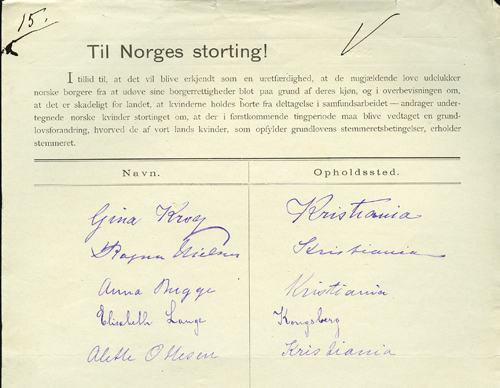 15.
Til Norges storting!
I tillid til, at det vil blive erkjendt som en uretfærdighed, at de nugjældende love udelukker
norske borgere fra at udøve sine borgerrettigheder blot paa grund af deres kjøn, og i overbevisningen om,
at det er skadeligt for landet, at kvinderne holdes borte fra deltagelse i samfundsarbeidet — andrager under-
tegnede norske kvinder stortinget om, at der i førstkommende tingperiode maa blive vedtaget en grund-
lovsforandring, hvorved de af vort lands kvinder, som opfylder grundlovens stemmeretsbetingelser, erholder
stemmeret.
Navn. Opholdssted.
Gina Krog Kristiania
Ragna Nielsen Kristiania
Anna Bugge Kristiania
Elisabeth Lange Kongsberg
Alette Ottesen Kristiania